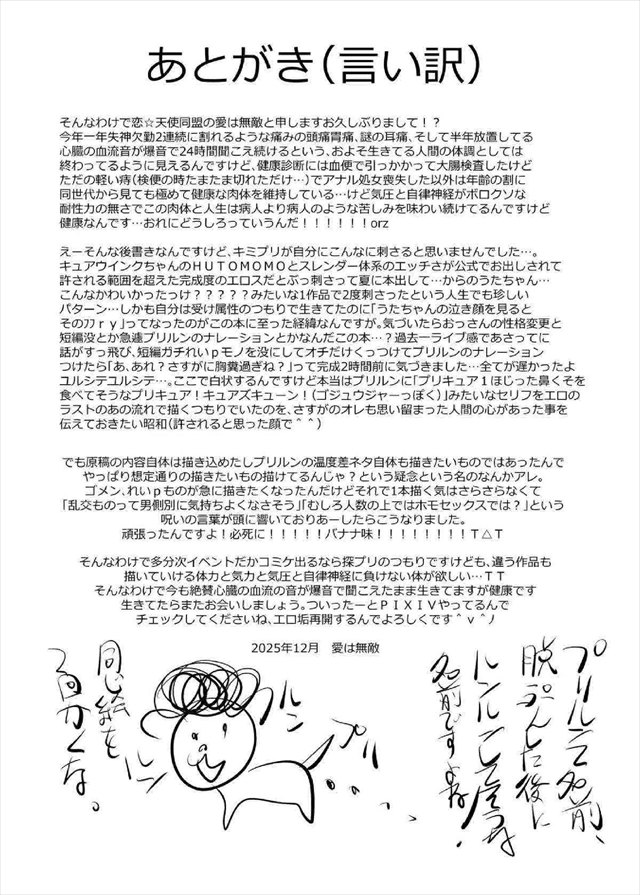 あとがき(言い訳)
そんなわけで恋☆天使同盟の愛は無敵と申しますお久しぶりまして！？
今年一年失神欠勤2連続に割れるような痛みの頭痛胃痛、謎の耳痛、そして半年放置してる
心臓の血流音が爆音で24時間聞こえ続けるという、およそ生きてる人間の体調としては
終わってるように見えるんですけど、健康診断には血便で引っかかって大腸検査したけど
ただの軽い痔(検便の時たまたま切れただけ…)でアナル処女喪失した以外は年齢の割に
同世代から見ても極めて健康な肉体を維持している…けど気圧と自律神経がボロクソな
耐性力の無さでこの肉体と人生は病人より病人のような苦しみを味わい続けてるんですけど
健康なんです…おれにどうしろっていうんだ！！！！！！orz
えーそんな後書きなんですけど、キミプリが自分にこんなに刺さると思いませんでした…。
キュアウインクちゃんのＨＵＴＯＭＯＭＯとスレンダー体系のエッチさが公式でお出しされて
許される範囲を超えた完成度のエロスだとぶっ刺さって夏に本出して…からのうたちゃん…
こんなかわいかったっけ？？？？？みたいな1作品で2度刺さったという人生でも珍しい
パターン…しかも自分は受け属性のつもりで生きてたのに「うたちゃんの泣き顔を見ると
そのﾌﾌｒｙ」ってなったのがこの本に至った経緯なんですが。気づいたらおっさんの性格変更と
短編没とか急遽プリルンのナレーションとかなんだこの本…？過去一ライブ感であさってに
話がすっ飛び、短編ガチれいｐモノを没にしてオチだけくっつけてプリルンのナレーション
つけたら「あ、あれ？さすがに胸糞過ぎね？」って完成2時間前に気づきました…全てが遅かったよ
ユルシテユルシテ…。ここで白状するんですけど本当はプリルンに「プリキュア１ほじった鼻くそを
食べてそうなプリキュア！キュアズキューン！(ゴジュウジャーっぽく)」みたいなセリフをエロの
ラストのあの流れで描くつもりでいたのを、さすがのオレも思い留まった人間の心があった事を
伝えておきたい昭和(許されると思った顔で＾＾)
でも原稿の内容自体は描き込めたしプリルンの温度差ネタ自体も描きたいものではあったんで
やっぱり想定通りの描きたいもの描けてるんじゃ？という疑念という名のなんかアレ。
ゴメン、れいｐものが急に描きたくなったんだけどそれで1本描く気はさらさらなくて
「乱交ものって男側別に気持ちよくなさそう」「むしろ人数の上ではホモセックスでは？」という
呪いの言葉が頭に響いておりあーしたらこうなりました。
頑張ったんですよ！必死に！！！！！バナナ味！！！！！！！！Ｔ△Ｔ
そんなわけで多分次イベントだかコミケ出るなら探プリのつもりですけども、違う作品も
描いていける体力と気力と気圧と自律神経に負けない体が欲しい…ＴＴ
そんなわけで今も絶賛心臓の血流の音が爆音で聞こえたまま生きてますが健康です
生きてたらまたお会いしましょう。ついったーとＰＩＸＩＶやってるんで
チェックしてくださいね、エロ垢再開するんでよろしくです＾ｖ＾ノ
2025年12月　愛は無敵
プリルンて名前、
脱ぷんした後に
ルンルンしてそうな
名前ですよね。
プリ
ルン
ルン
同じ絵を
2回かくな。